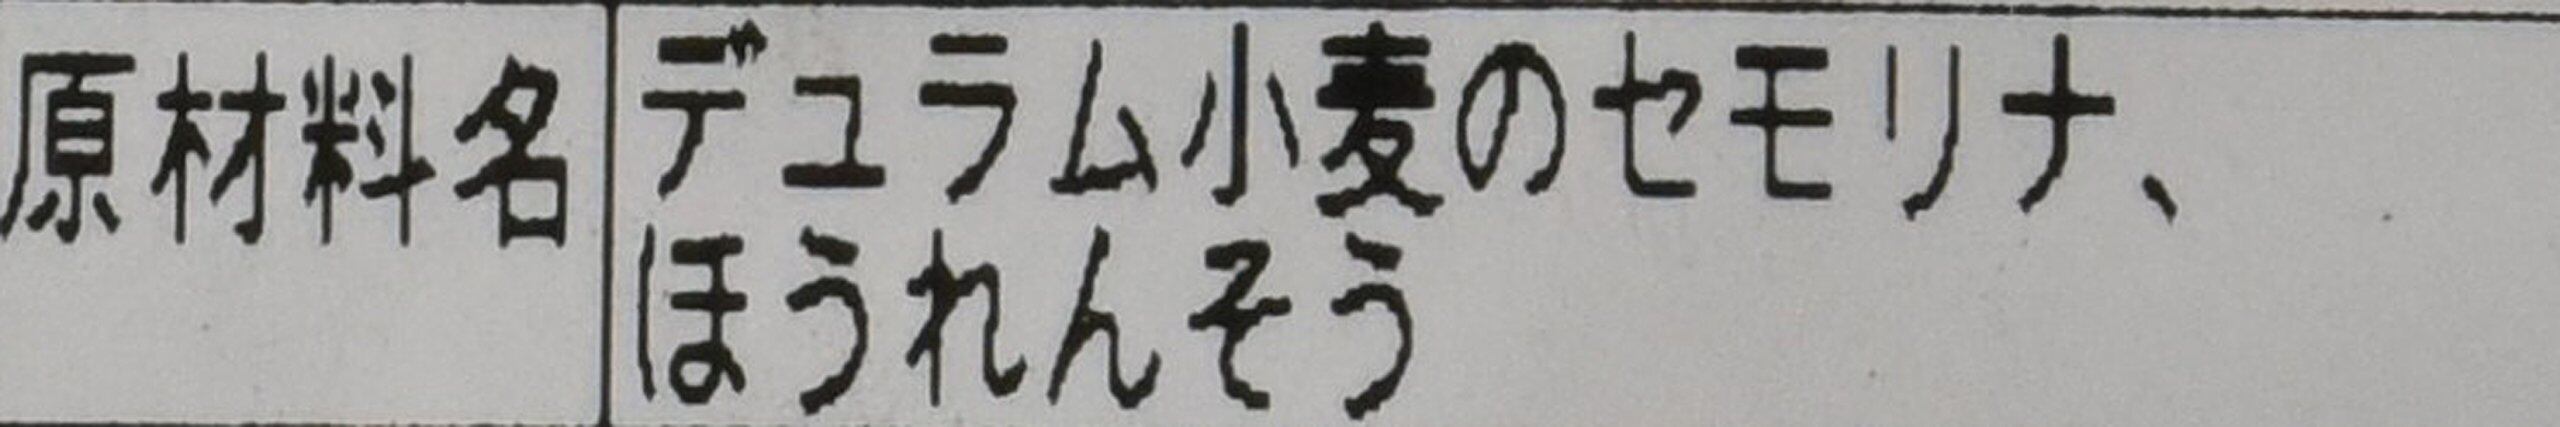 原材料名
デュラム小麦のセモリナ、
ほうれんそう